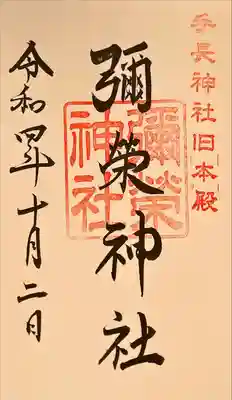 手長神社旧本殿
彌榮神社
彌榮神社
令和四年十月二日